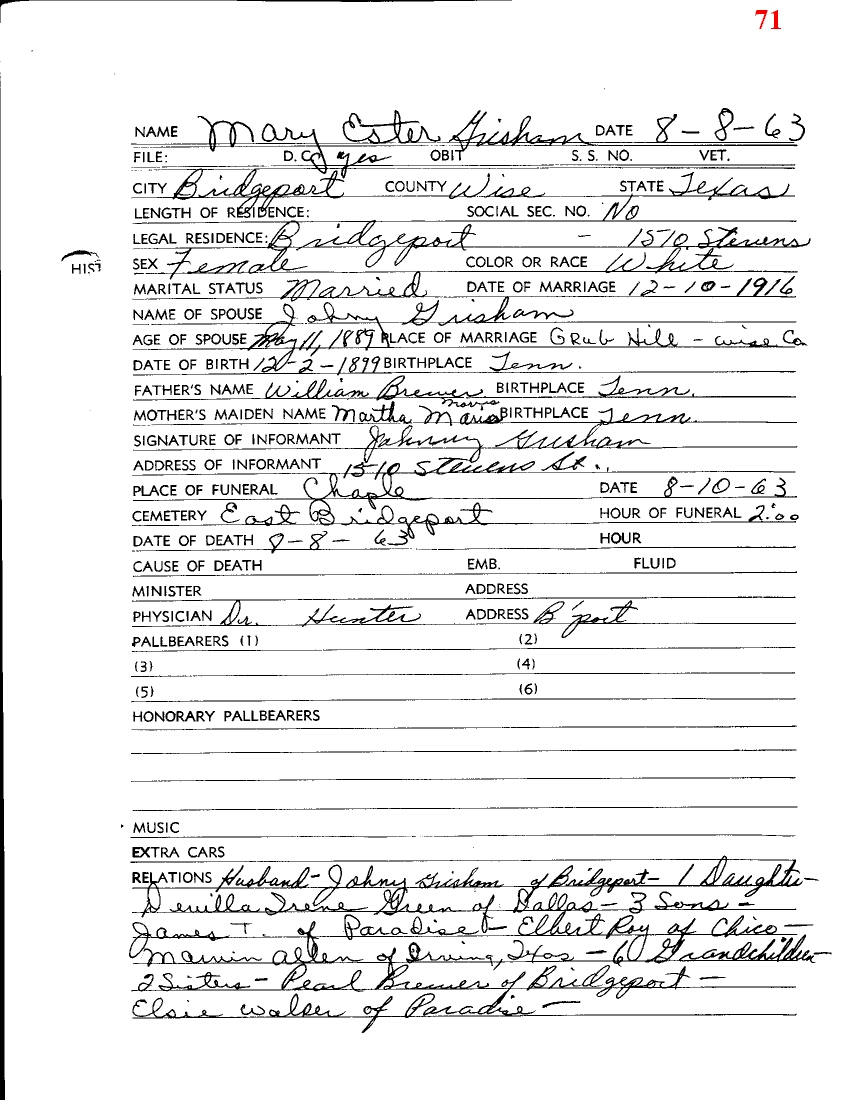 71
NAME Mary Ester Grisham DATE 8-8-63
FILE: D.C. yes OBIT S. S. NO. VET.
CITY Bridgeport COUNTY Wise STATE Texas
LENGTH OF RESIDENCE: SOCIAL SEC. NO. No
LEGAL RESIDENCE: Bridgeport - 1510 Stevens
HIST
SEX Female COLOR OR RACE White
MARITAL STATUS Married DATE OF MARRIAGE 12-10-1916
NAME OF SPOUSE Johny Grisham
AGE OF SPOUSE May 11, 1889 PLACE OF MARRIAGE Grub Hill - wise Co
DATE OF BIRTH 12-2-1899 BIRTHPLACE Tenn.
FATHER'S NAME William Brewer BIRTHPLACE Tenn.
MOTHER'S MAIDEN NAME Martha Morris BIRTHPLACE Tenn.
SIGNATURE OF INFORMANT Johnny Grisham
ADDRESS OF INFORMANT 1510 Stevens St.
PLACE OF FUNERAL Chaple DATE 8-10-63
CEMETERY East Bridgeport HOUR OF FUNERAL 2:00
DATE OF DEATH 8-8-63 HOUR
CAUSE OF DEATH EMB. FLUID
MINISTER ADDRESS
PHYSICIAN Dr. Hunter ADDRESS B'port
PALLBEARERS (1) (2)
(3) (4)
(5) (6)
HONORARY PALLBEARERS
MUSIC
EXTRA CARS
RELATIONS Husband- Johny Grisham of Bridgeport- 1 Daughter-
Irene Green of Dallas- 3 Sons-
James T. of Paradise- Elbert Roy of Chico-
Marvin Allen of Irving, Texas - 6 Grandchildren-
2 Sisters- Pearl Brewer of Bridgeport-
Elsie Walker of Paradise-